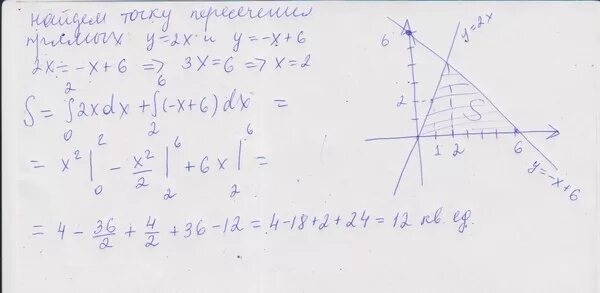 найдем точку пересечения
прямых y=2x и y=-x+6
2x=-x+6 => 3x=6 => x=2
S=∫₀²2xdx+∫₂⁶(-x+6)dx =
= x²|₀² - x²/2|₂⁶ +6x|₂⁶ =
= 4 - 36/2 + 4/2 +36-12=4-18+2+24=12 кв. ед.
y=2x
6
2
S
1 2 6
y=-x+6